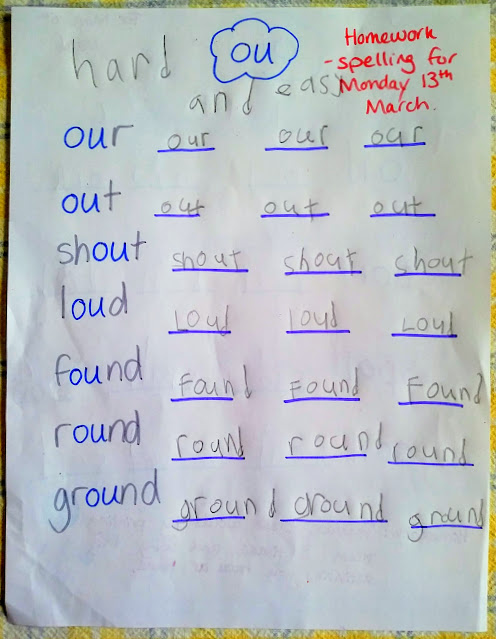 hard and easy
ou
Homework
- spelling for
Monday 13th
March.
our our our our
out out out out
shout shout shout shout
loud Loud loud Loud
found Found Found Found
round round round round
ground ground ground ground